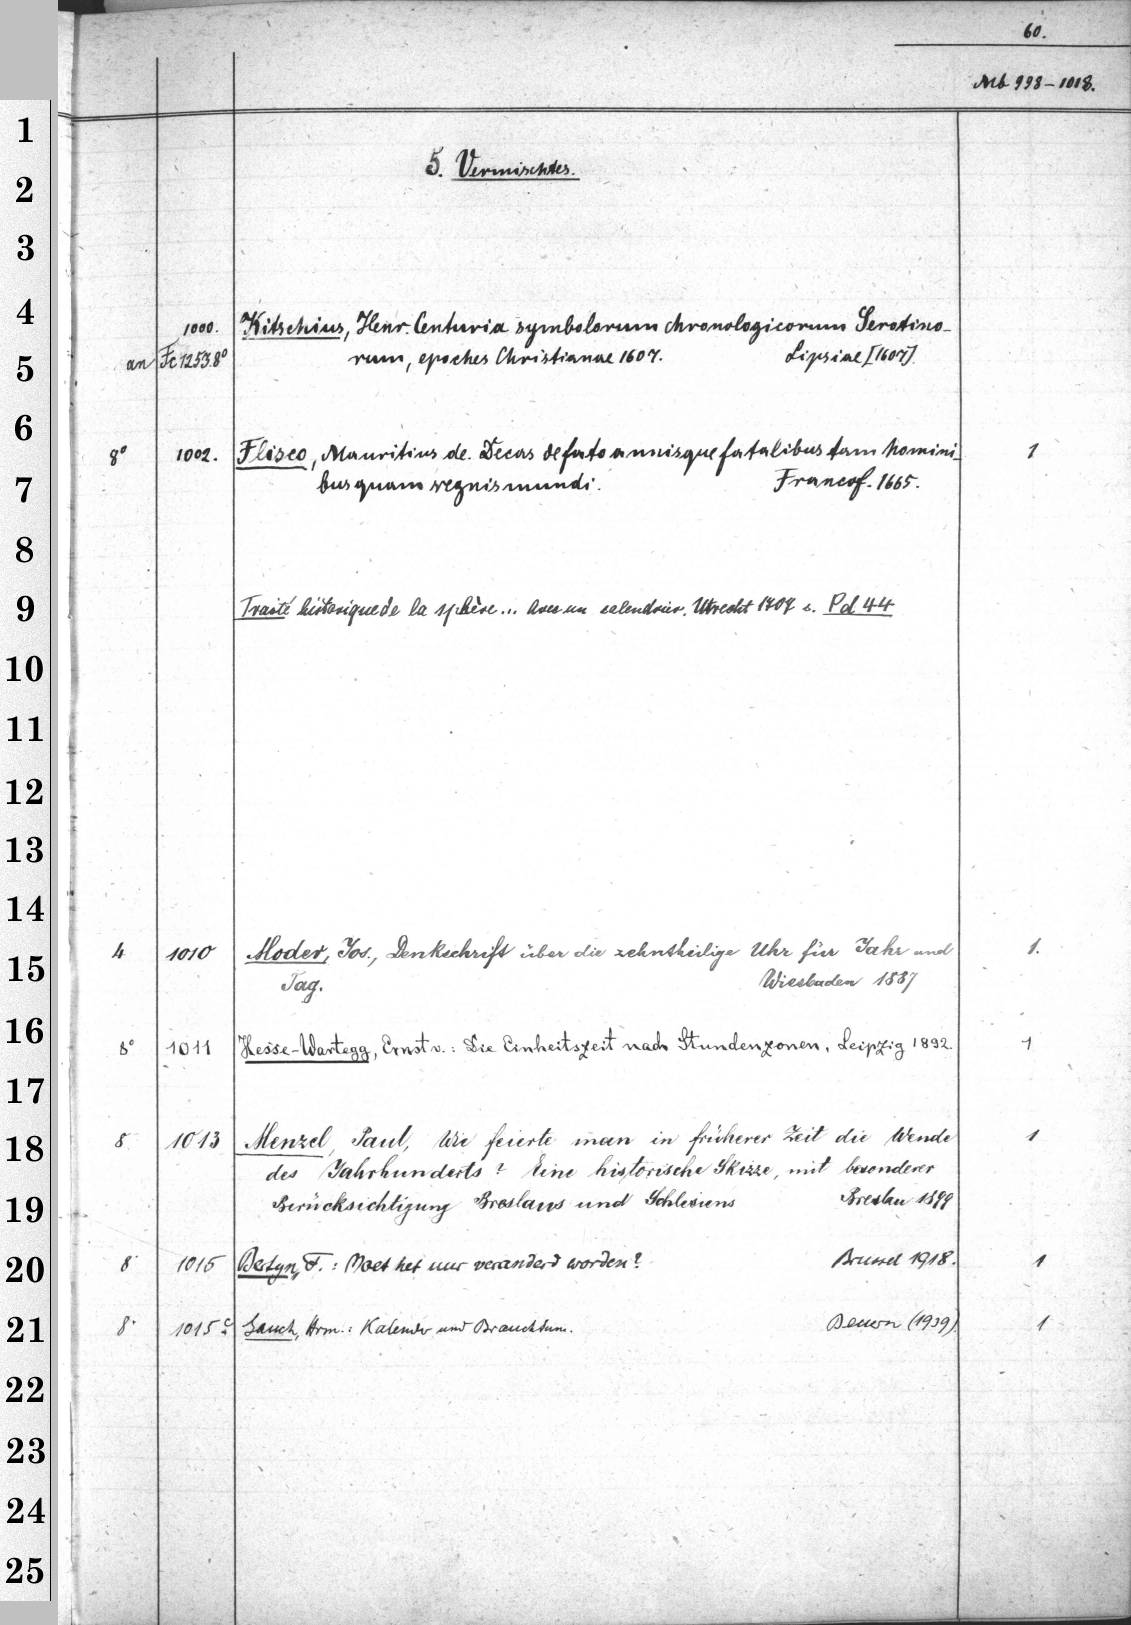 60.
Mb 998-1018.
1
5. Vermischtes.
2
3
4
1000. Kitschius, Henr. Centuria symbolorum chronologicorum Serotino-
5
an Fc 1253.8° rum, epoches Christianae 1607. Lipsiae [1607]
6
8° 1002. Flisco, Mauritius de. Decas de fato annisque fatalibus tam homini- 1
7
bus quam regnis mundi. Francof. 1665.
8
9
Traité historique de la sphère... Avec un calendrier. Utrecht 1707 s. Pd 44
10
11
12
13
14
4 1010 Moder, Jos., Denkschrift über die zehntheilige Uhr für Jahr und 1.
15
Tag. Wiesbaden 1887
16
8° 1011 Hesse-Wartegg, Ernst v.: Die Einheitszeit nach Stundenzonen. Leipzig 1892. 1
17
18
8 1013 Menzel, Paul, Wie feierte man in früherer Zeit die Wende 1
des Jahrhunderts? Eine historische Skizze, mit besonderer
19
Berücksichtigung Breslaus und Schlesiens Breslau 1899
20
8 1015 F.: Moet het uur veranderd worden? Brussel 1918. 1
21
8° 1015 c Gauch, Hrm.: Kalender und Brauchtum. (1939) 1
22
23
24
25